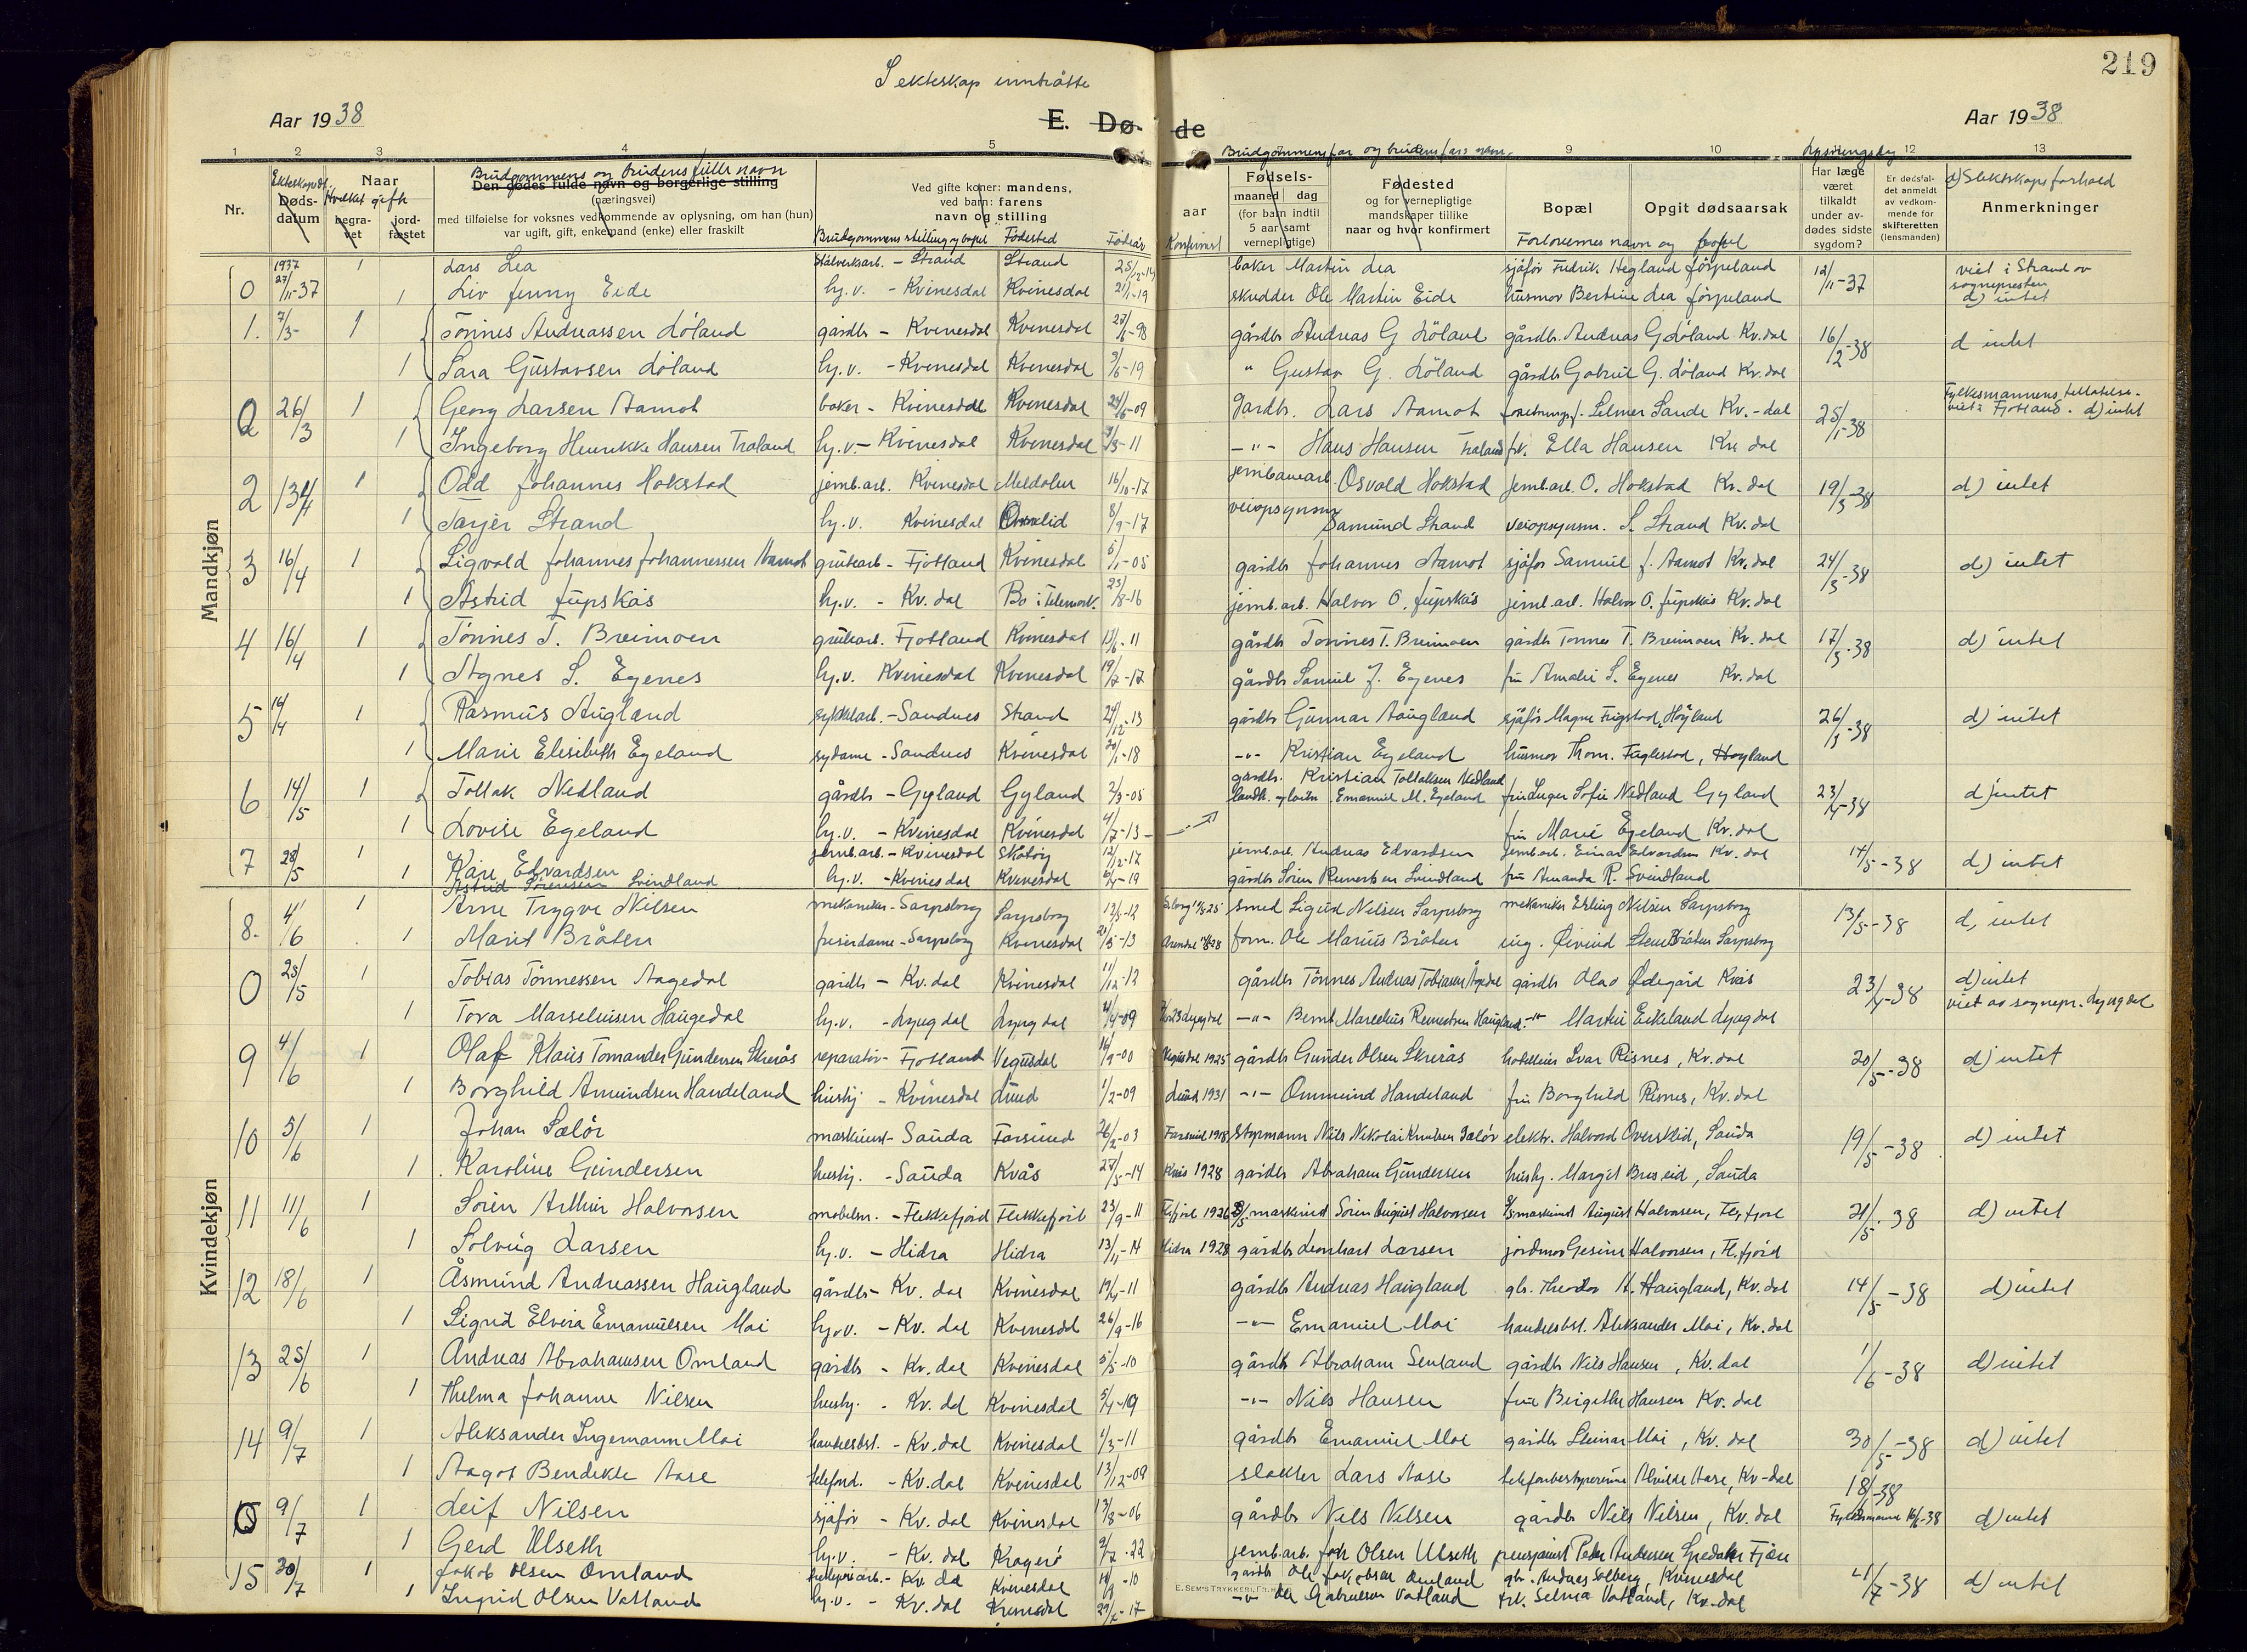 219
I ekteskap inntrådte
Aar 1938
E. Dø-
de
Aar 1938
1 2 3 4 5 9 10 12 13
Nr.
Døds-datum
Naar
begra-vet
jord-fæstet
Brudgommens og brudens fulle navn
Den dødes fulde navn og borgerlige stilling
(næringsvei)
med tilføielse for voksnes vedkommende av oplysning, om han (hun)
var ugift, gift, enkemand (enke) eller fraskilt
Ved gifte koner: mandens,
ved barn: farens
navn og stilling
Brudgommens stilling og bopel Fødested Fødselsår
aar
Konfirmert
Brudgommens far og brudens fars navn.
Fødsels-
maaned dag
(for barn indtil
5 aar samt
vernepligtige)
Fødested
og for vernepligtige
mandskaper tillike
naar og hvor konfirmert
Bopæl
Opgit dødsaarsak
Forlovernes navn og bopel
Lysningsdag
Har læge
været
tilkaldt
under av-
dødes sidste
sygdom?
Er dødsfal-
det anmeldt
av vedkom-
mende for
skifteretten
(lensmanden)
d) Slektskapsforhold
Anmerkninger
Mandkjøn
Kvindekjøn
0 1937 27/11-37 1 Lars Lea Stålverksarb. - Strand Strand baker Martin Lea sjåfør Fredrik Hegland Jørpeland 12/11-37 viet i Strand av sognepresten d) intet
1 Liv Jenny Eide hj.v. - Kvinesdal Kvinesdal 21/1-19 skredder Ole Martin Eide husmor Bertine Lea Jørpeland
1. 7/3- 1 Tønnes Andreassen Löland gårdbr - Kvinesdal Kvinesdal gårdbr Andreas G Löland gårdbr. Andreas G Löland Kv.dal 16/2-38 d intet
1 Sara Gustavsen Löland hj.v. - Kvinesdal Kvinesdal 9/6-19 " Gustav G. Löland gårdbr Gabriel G. Löland Kv.dal
0 26/3 1 Georg Larsen Aamot baker - Kvinesdal Kvinesdal 24/6-09 Gardbr. Lars Aamot Selmer Sande Kv.-dal 25/1-38 Fylkesmannens tillatelse. viet i Fjotland. d) intet
1 Ingeborg Henrikke Hansen Traland hj.v. - Kvinesdal Kvinesdal 9/3-11 -"- Hans Hansen Traland frk. Ella Hansen Kv. dal
2 13/4 1 Odd Johannes Hokstad jernb.arb. Kvinesdal Meldalen 16/10-17 jernbanearb. Osvald Hokstad jernb.arb. O. Hokstad Kv.dal 19/3-38 d) intet
1 Tarjer Strand hj.v. Kvinesdal 8/9-17 veiopsynsm Samund Strand veiopsynsm. S. Strand Kv.dal
3 16/4 1 Sigvald Johannes Johannessen Aamot grubearb - Fjotland Kvinesdal 5/1-05 gårdbr Johannes Aamot sjåfør Samuel J. Aamot Kv.dal 24/3-38 d) intet
1 Astrid Jupskås hj.v. - Kv. dal Bø i Telemark. 25/8-16 jernb.arb. Halvor O. Jupskås jernb.arb. Halvor O. Jupskås Kv.dal
4 16/4 1 Tönnes T. Breimoen grubearb. Fjotland Kvinesdal 13/6-11 gårdbr Tönnes T. Breimoen gårdbr Tönnes T. Breimoen Kv. dal 17/3-38 d) intet
1 Agnes S. Egenes hj.v. Kvinesdal Kvinesdal 19/7-17 gårdbr Samuel J. Egenes fru Amalie S. Egenes Kv.dal
5 16/4 1 Rasmus Augland sykkelarb. - Sandnes Strand 24/12-13 gårdbr Gunnar Aaugland sjåfør Magne Frigstad, Höyland 26/3-38 d) intet
1 Marie Elisabeth Egeland sydame - Sandnes Kvinesdal 20/1-18 -"- Kristian Egeland husmor Thom. Fuglestad, Høyland
6 14/5 1 Tollak Nedland gårdbr - Gyland Gyland 2/3-05 gårdbr. Kristian Tollaksen Nedland fru Inger Sofie Nedland Gyland 23/4-38 d) intet
1 Lovise Egeland hj.v. - Kvinesdal Kvinesdal 4/7-13 Emanuel M. Egeland fru Marie Egeland Kv.dal
7 28/5 1 Kåre Edvardsen jernb.arb. - Kvinesdal Skåtøy 12/2-17 jernb.arb. Andreas Edvardsen jernb.arb. Einar Edvardsen Kv. dal 14/5-38 d) intet
1 Astrid Sørensen Svindland hj.v. - Kvinesdal Kvinesdal 6/4-19 gårdbr Sören Reinertsen Svindland fru Amanda R. Svindland
8. 4/6 1 Arne Trygve Nilsen mekaniker - Sarpsborg Sarpsborg 13/3-12 smed Sigurd Nilsen Sarpsborg mekaniker Erling Nilsen Sarpsborg 13/5-38 d, intet
1 Marit Bråten friserdame - Sarpsborg Kvinesdal form. Ole Marius Bråten ing. Øivind Bråten Sarpsborg
0 25/5 1 Tobias Tönnessen Aagedal gårdbr - Kv.dal Kvinesdal 11/12-12 gårdbr Tönnes Andreas Tobiassen Ågedal gårdbr Olav Ødegård Kvås 23/4-38 d) intet viet av sognepr. Lyngdal
1 Tora Marseliusen Haugedal hj.v. - Lyngdal Lyngdal -"- Bernt Marselius Reinertsen -"- Martin Eikeland Lyngdal
9 4/6 1 Olaf Klaus Tomander Gundersen Skerås reparatör - Fjotland Vegusdal Vegusdal 1925 gårdbr Gunder Olsen Skerås hotelleier Ivar Risnes, Kv.dal 20/5-38 d) intet
1 Borghild Amundsen Handeland hushj - Kvinesdal Lund 1/2-09 Lund 1931 -"- Ommund Handeland fru Borghild Risnes, Kv.dal
10 5/6 1 Johan Sælör maskinist - Sauda Farsund 26/2-03 Farsund 1918 Styrmann Nils Nikolai Knutsen Sælör elektr. Halvard Överskeid, Sauda 19/5-38 d) intet
1 Karoline Gundersen hushj. - Sauda Kvås 27/5-14 Kvås 1928 gårdbr Abraham Gundersen hushj. Margit Briseid, Sauda
11 11/6 1 Sören Arthur Halvorsen möbelsn. - Flekkefjord Flekkefjord 23/9-11 Fl.fjord 1926 maskinist Sören August Halvorsen maskinist August Halvorsen, Fl.fjord 21/5-38 d) intet
1 Solveig Larsen hj.v. - Hidra Hidra 13/11-14 Hidra 1928 gårdbr Leonhart Larsen jordmor Gesine Halvorsen, Fl.fjord
12 18/6 1 Åsmund Andreassen Haugland gårdbr - Kv. dal Kvinesdal 19/4-11 gårdbr Andreas Haugland gbr. Theodor A. Haugland, Kv.dal 14/5-38 d) intet
1 Sigrid Elvira Emanuelsen Moi hj.v. - Kv. dal Kvinesdal 26/9-16 -"- Emanuel Moi handelsbest. Aleksander Moi, Kv.dal
13 25/6 1 Andreas Abrahamsen Omland gårdbr - Kv. dal Kvinesdal 5/5-10 gårdbr Abraham gårdbr Nils Hansen, Kv.dal 1/6-38 d) intet
1 Thelma Johanne Nilsen hushj. - Kv. dal Kvinesdal 5/4-19 -"- Nils Hansen fru Birgithe Hansen Kv. dal
14 9/7 1 Aleksander Ingemann Moi handelsbst. - Kv.dal Kvinesdal 1/3-11 gårdbr Emanuel Moi gårdbr Steinar Moi, Kv. dal 30/5-38 d) intet
1 Aagot Bendikte Aase telefonb. - Kv.dal Kvinesdal 13/12-09 slakter Lars Aase telefonbestyrerinne Alvilde Aase, Kv-dal
0 9/7 1 Leif Nilsen sjåför - Kv. dal Kvinesdal 13/8-06 gårdbr Nils Nilsen gårdbr Nils Nilsen, Kv. dal 18/-38 Fylkesmann 16/6-38 d) intet
1 Gerd Ulseth hj.v. - Kv. dal Kragerö 9/7-22 jernb.arb. Joh Olsen Ulseth pensjonist Peder Andersen
15 30/7 1 Jakob Olsen Omland Kv. dal Kvinesdal gårdbr Ole Jakobsen Omland gbr. Andreas Solberg Kvinesdal 4/7-38 d) intet
1 Ingrid Olsen Vatland hj.v. - Kv. dal Kvinesdal 29/6-17 -"- Ole Gabrielsen Vatland frk. Selma Vatland, Kv.dal
E. SEM'S TRYKKERI, FR.HALD